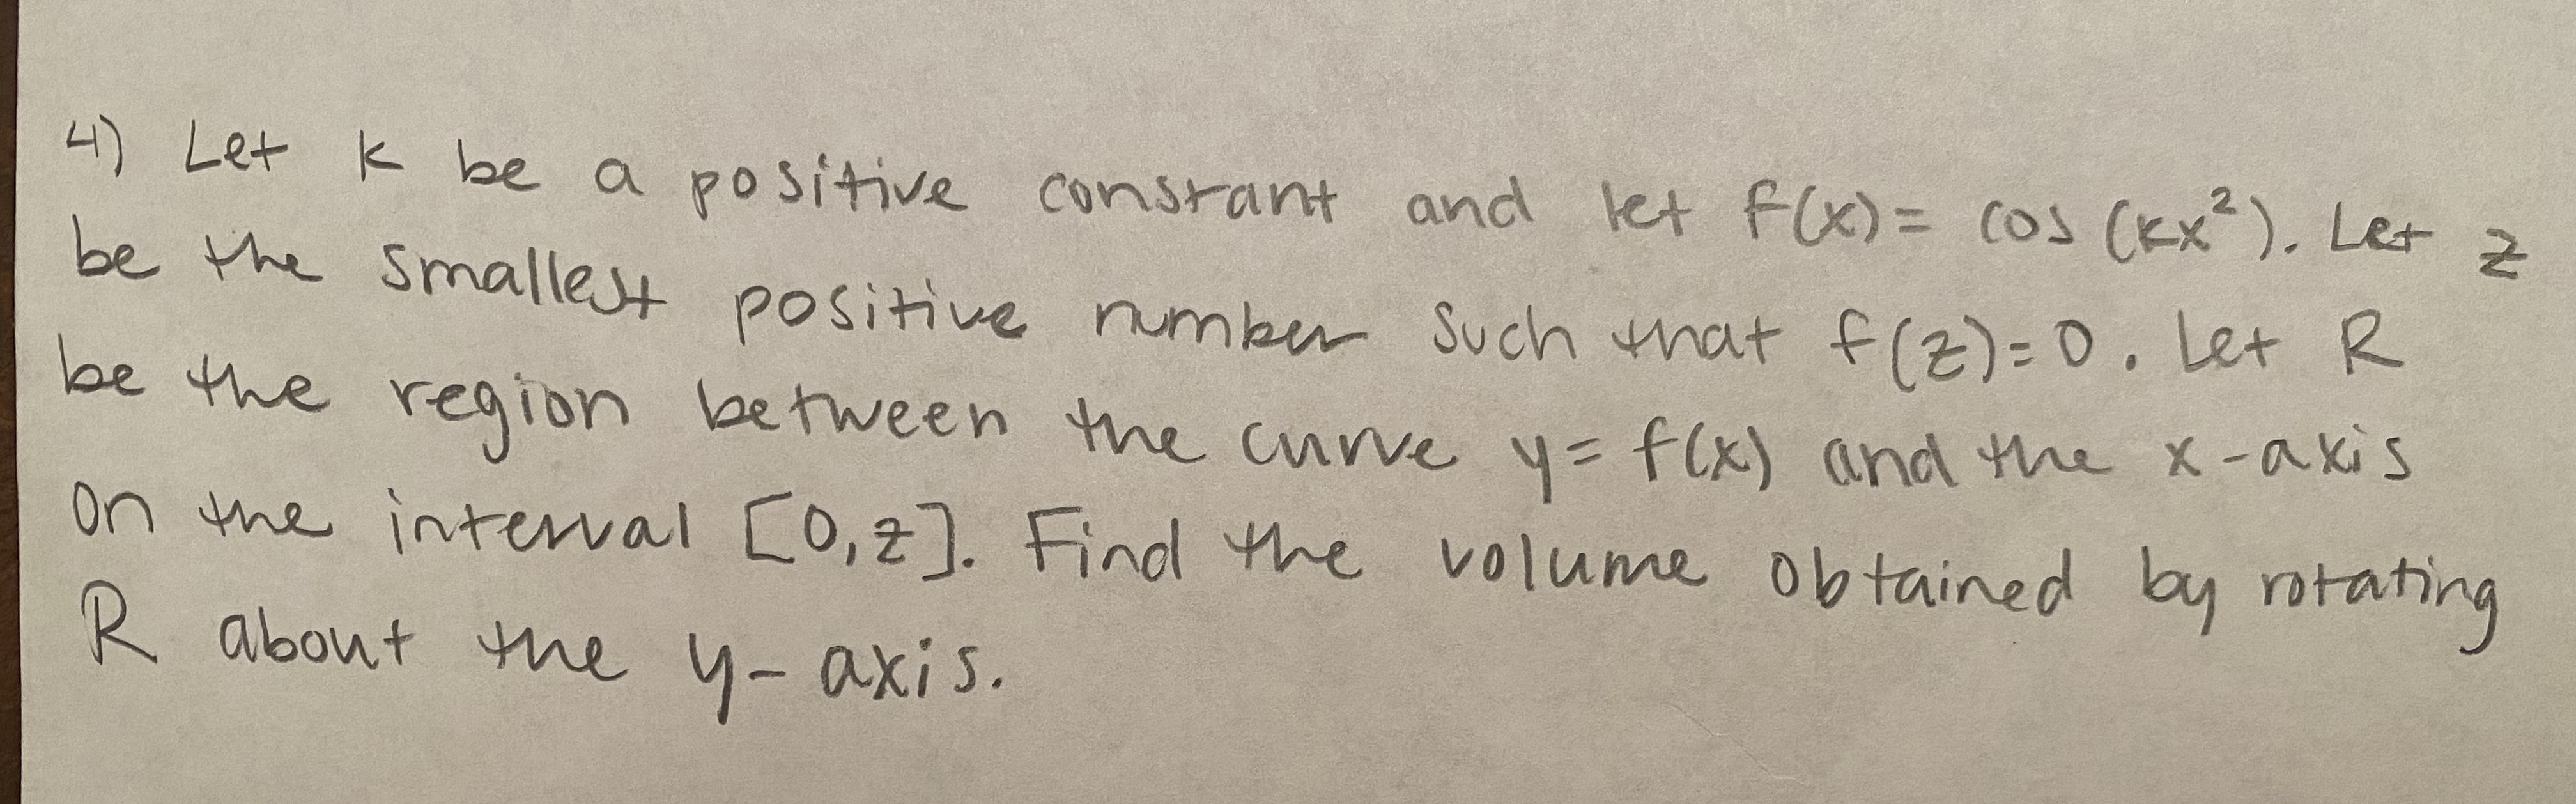 4) Let k be a positive constant and let f(x) = cos (kx²). Let z
be the smallest positive number such that f(z)=0. Let R
be the region between the curve y = f(x) and the x-axis
on the interval [0,z]. Find the volume obtained by rotating
R about the y-axis.